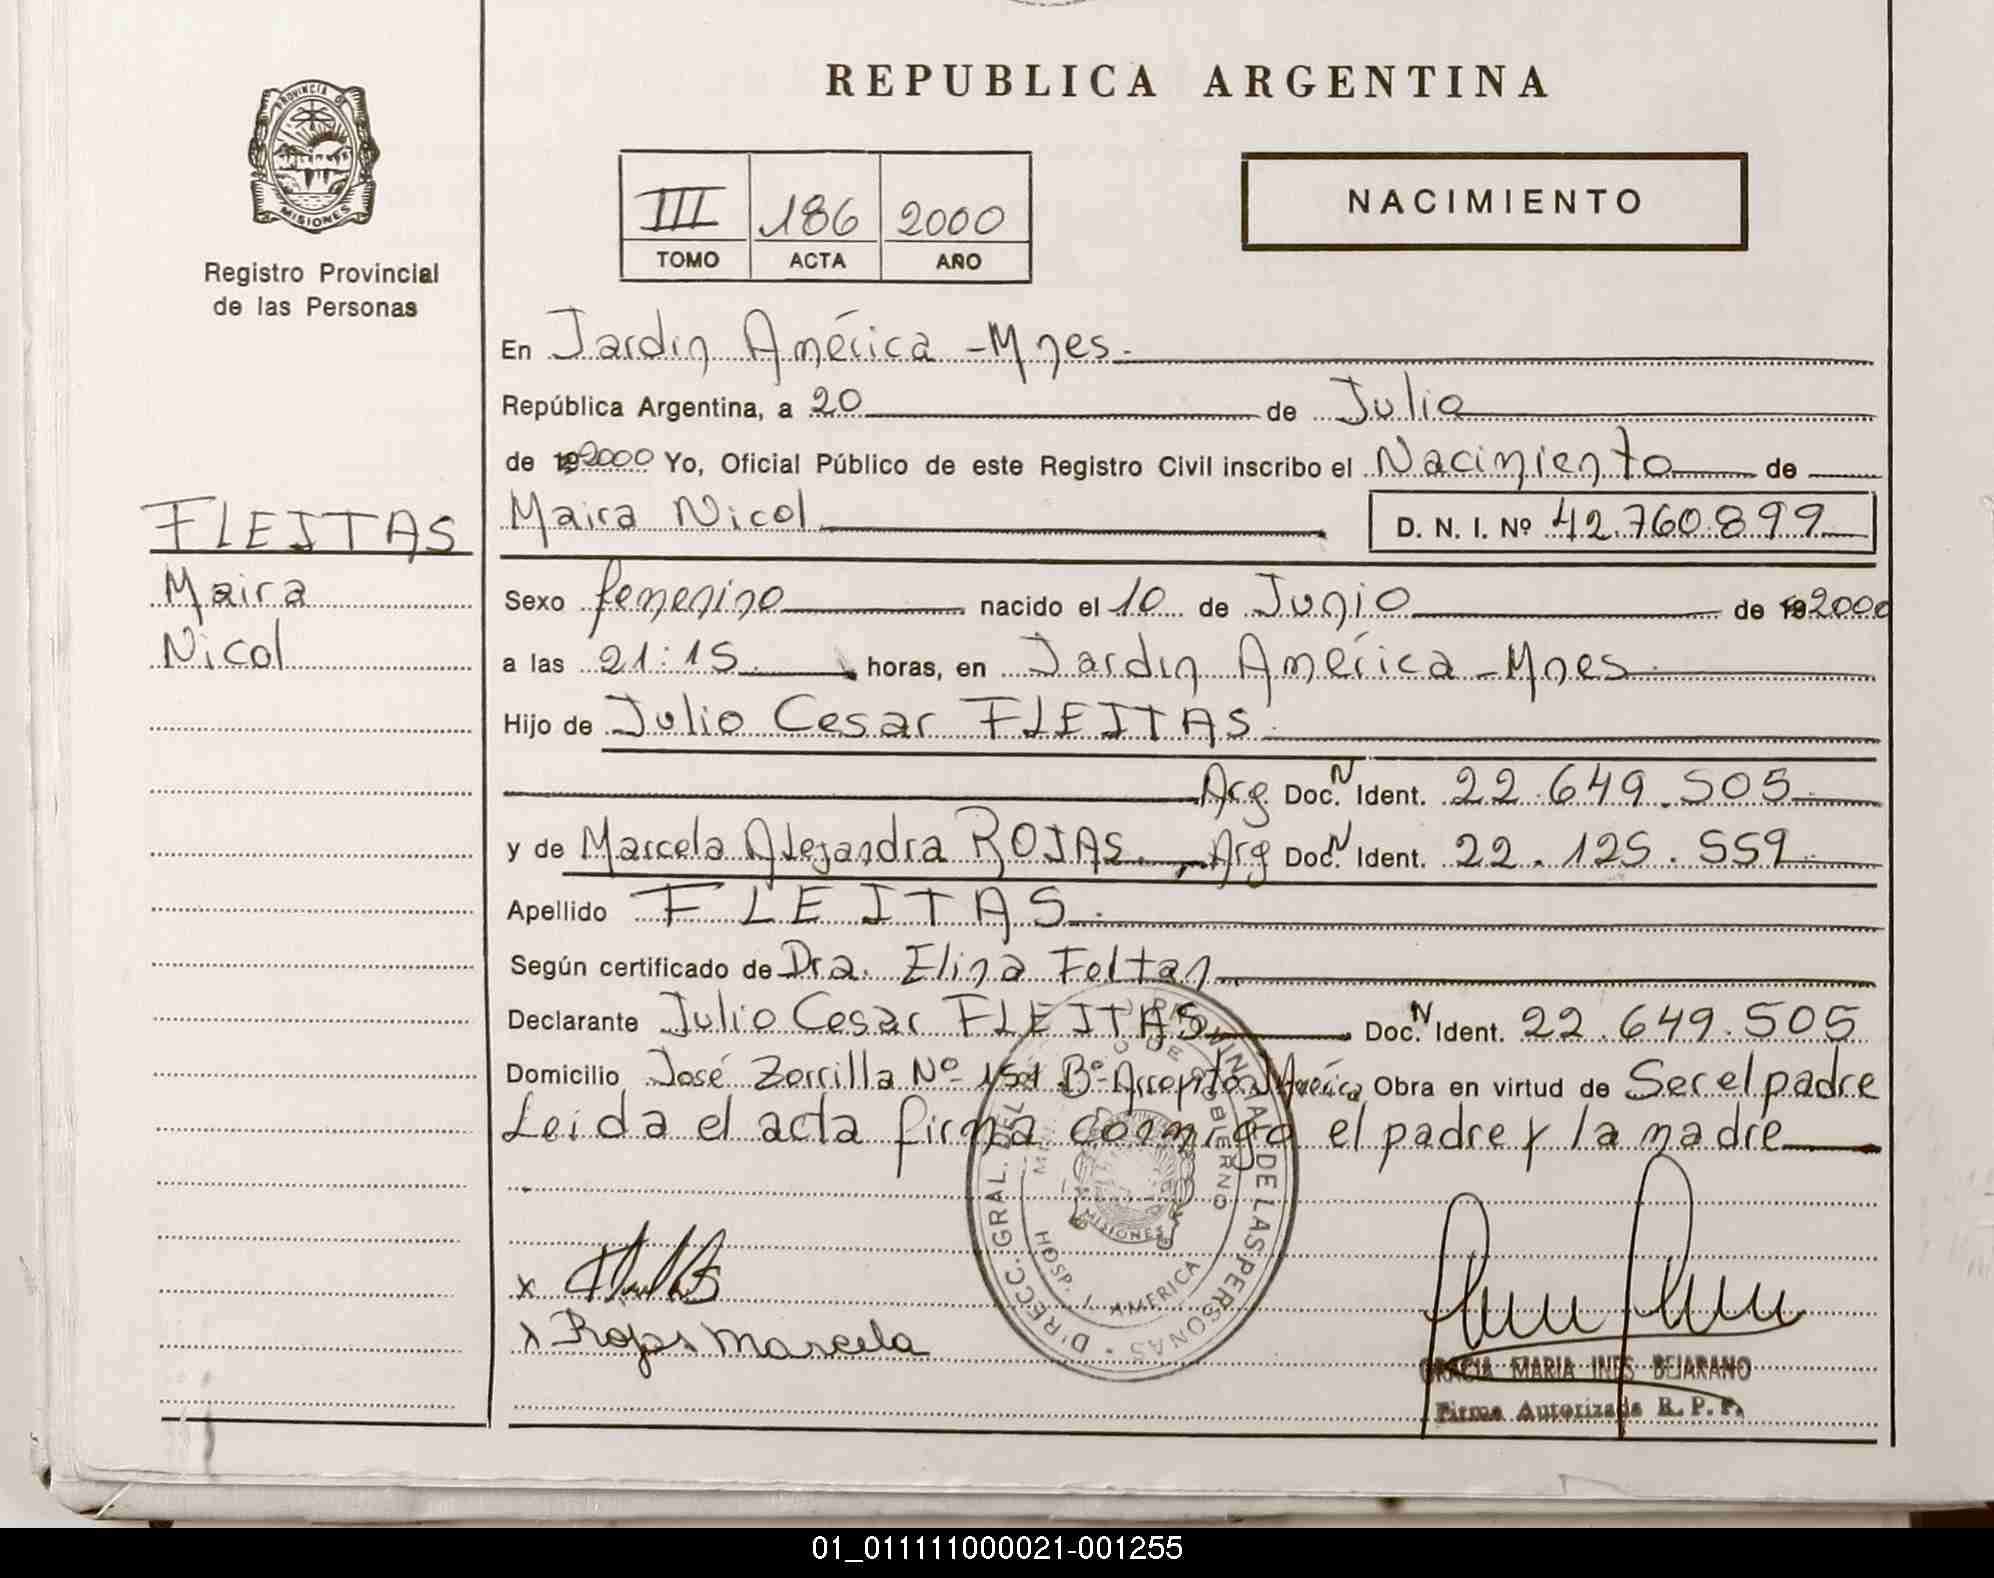 REPUBLICA ARGENTINA
PROVINCIA DE
MISIONES
Registro Provincial
de las Personas
III 186 2000
TOMO ACTA AÑO
NACIMIENTO
En Jardin América - Mnes.
República Argentina, a 20 de Julio
de 192000 Yo, Oficial Público de este Registro Civil inscribo el Nacimiento de
FLEITAS
Maira
Nicol
Maira Nicol D. N. I. Nº 42.760.899
Sexo femenino nacido el 10 de Junio de 192000
a las 21:15 horas, en Jardin América - Mnes.
Hijo de Julio Cesar FLEITAS.
Arg Doc. N Ident. 22.649.505
y de Marcela Alejandra ROJAS. Arg Doc. N Ident. 22.125.559
Apellido FLEITAS.
Según certificado de Dra. Elina Foltan
Declarante Julio Cesar FLEITAS Doc. N Ident. 22.649.505
Domicilio José Zorrilla Nº 151 Bº Arroyito J América Obra en virtud de Ser el padre
Leida el acta firma conmigo el padre y la madre
D'RECC. GRAL. DEL PROVINCIAL DE LAS PERSONAS
DE GOBIERNO
MISIONES
HOSP. J. AMERICA
x
x Rojas Marcela
GRACIA MARIA INES BEJARANO
Firma Autorizada R. P. P.
01_011111000021-001255